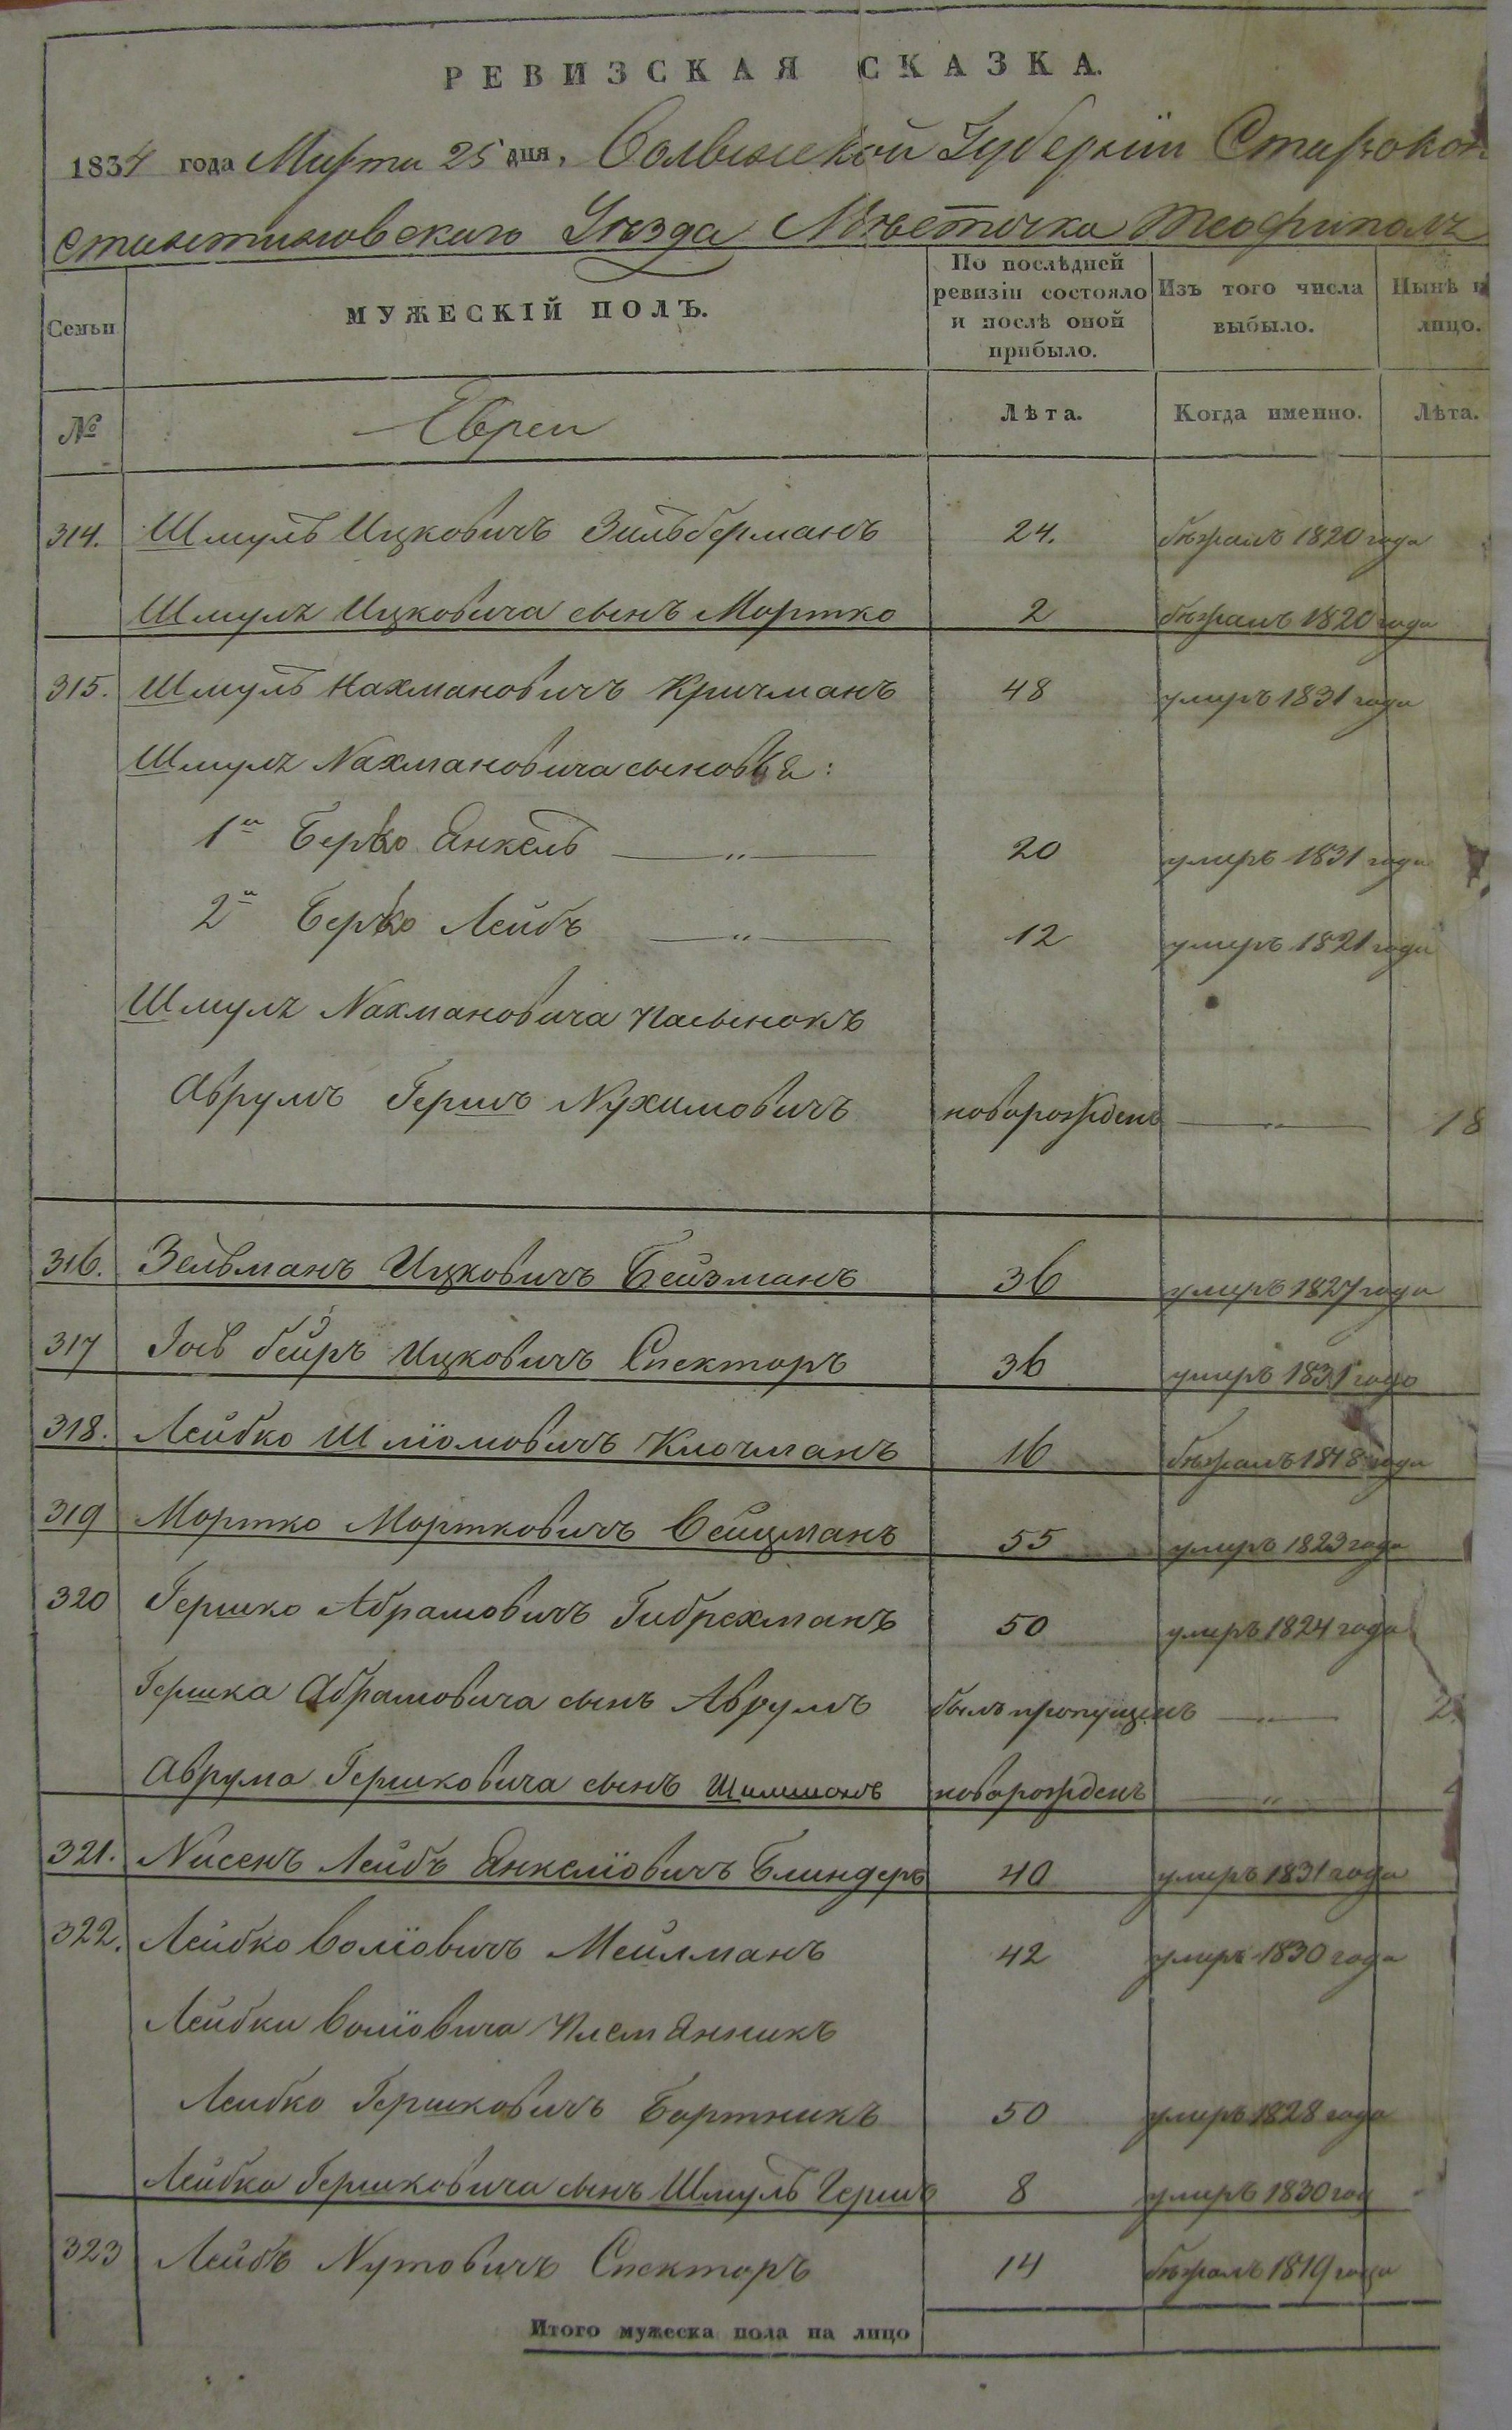 РЕВИЗСКАЯ СКАЗКА.
1834 года Марта 25 дня, Волынской Губернии Старокон-
стантиновского Уезда Местечка Теофиполя
Семьи
МУЖЕСКІЙ ПОЛЪ.
По послѣдней ревизіи состояло и послѣ оной прибыло.
Изъ того числа выбыло.
Нынѣ н лицо.
№
Евреи
Лѣта.
Когда именно.
Лѣта.
314. Шмуль Ицковичъ Зильберманъ 24. бѣжалъ 1820 года
Шмуля Ицковича сынъ Мортко 2 бѣжалъ 1820 года
315. Шмуль Нахмановичъ Кричманъ 48 умеръ 1831 года
Шмуля Нахмановича сыновья:
1й Берко Янкель —„— 20 умеръ 1831 года
2й Берко Лейбъ —„— 12 умеръ 1821 года
Шмуля Нахмановича пасынокъ
Аврумъ Гершъ Нухимовичъ новорожденъ —„— 18
316. Зельманъ Ицковичъ Бейзманъ 36 умеръ 1827 года
317 Іось беиръ Ицковичъ Спекторъ 36 умеръ 1831 года
318. Лейбко Шліомовичъ Клочманъ 16 бѣжалъ 1818 года
319 Мортко Мортковичъ Вейцманъ 55 умеръ 1823 года
320 Гершко Абрамовичъ Гибрехманъ 50 умеръ 1824 года
Гершка Абрамовича сынъ Аврумъ былъ пропущенъ —„— 2
Аврума Гершковича сынъ Шимшонъ новорожденъ —„—
321. Нисенъ Лейбъ Янкеліовичъ Блиндеръ 40 умеръ 1831 года
322. Лейбко Воліовичъ Мейлманъ 42 умеръ 1830 года
Лейбки Воліовича племянникъ
Лейбко Гершковичъ Бортникъ 50 умеръ 1828 года
Лейбка Гершковича сынъ Шмуль Гершъ 8 умеръ 1830 год
323 Лейбъ Нутовичъ Спекторъ 14 бѣжалъ 1819 года
Итого мужеска пола на лицо